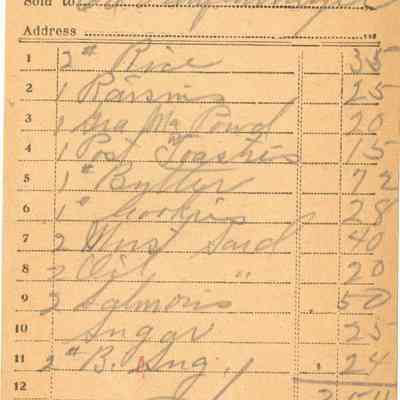 Sold to
Address
1 2# Rice 35
2 1 Raisins 25
3 1 Gra Ma Powd 20
4 1 Post Toasties 15
5 1# Butter 72
6 1# Cookies 28
7 2 Must Sard 40
8 2 Oil " 20
9 2 Salmons 50
10 Suggr 25
11 2# B. Sug. 24
12